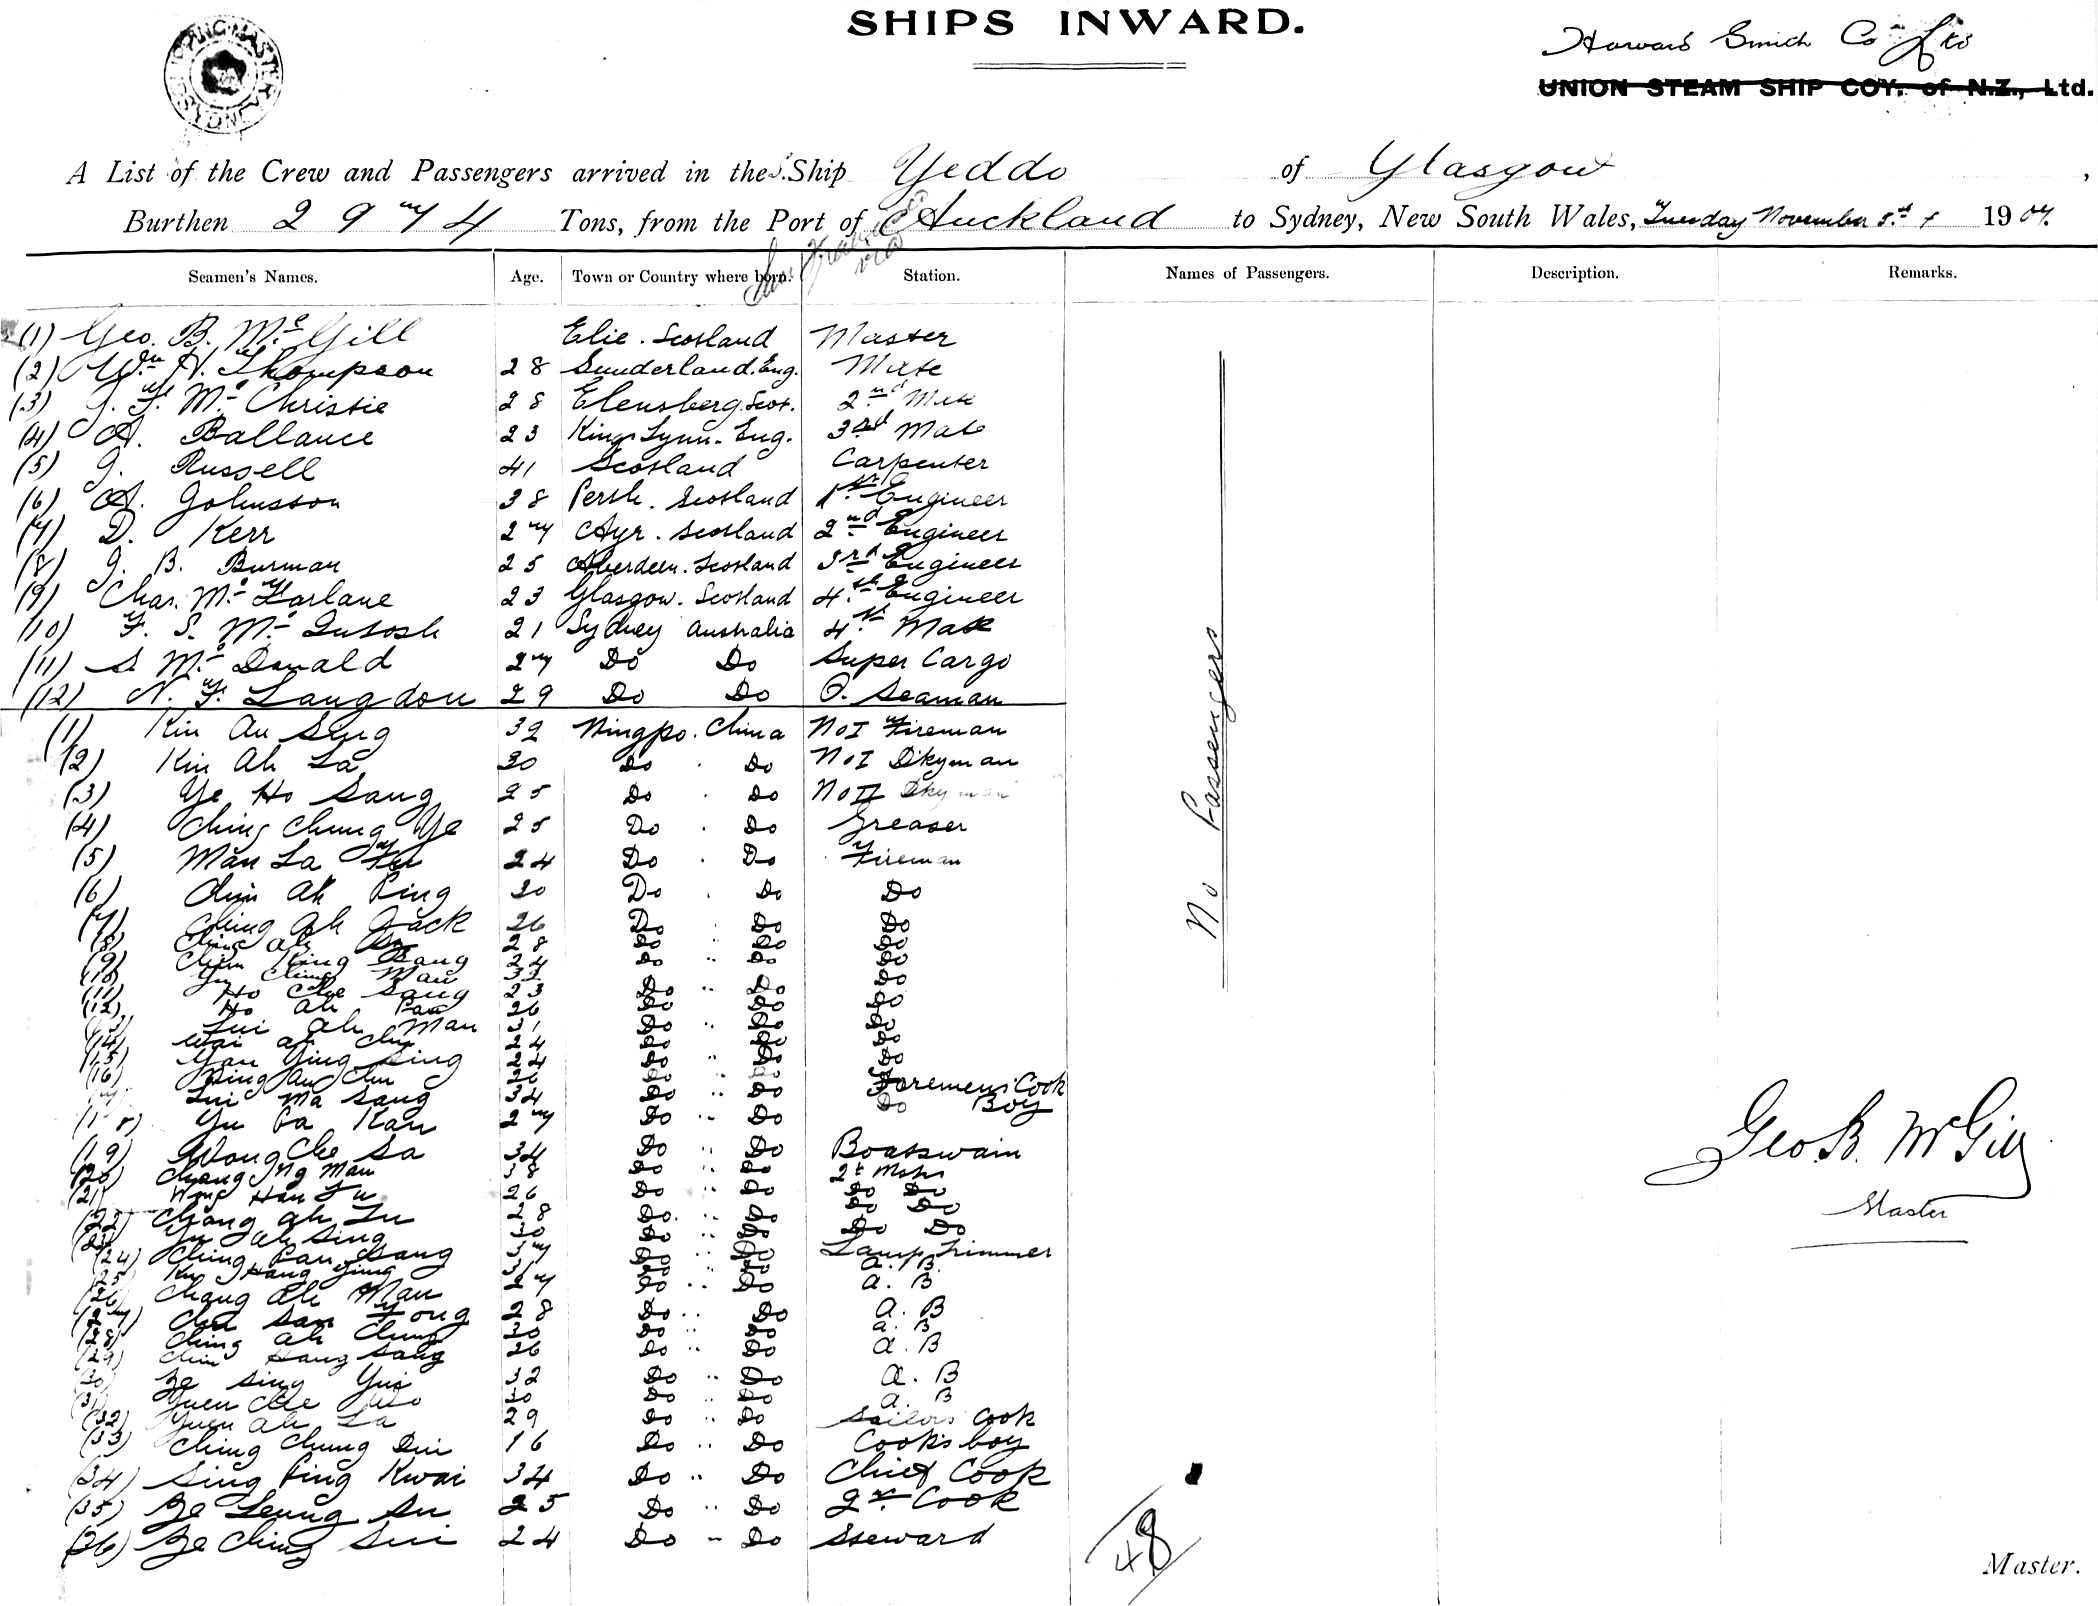 SHIPS INWARD.
Howard Smith Co Ltd
UNION STEAM SHIP COY. of N.Z., Ltd.
A List of the Crew and Passengers arrived in the S. Ship Yeddo of Glasgow,
Burthen 2974 Tons, from the Port of Auckland to Sydney, New South Wales, Tuesday November 5th 1907.
Seamen's Names. Age. Town or Country where born. Station. Names of Passengers. Description. Remarks.
(1) Geo. B. McGill Elie. Scotland Master
(2) Wm H. Thompson 28 Sunderland. Eng. Mate
(3) J. F. McChristie 28 Elensberg. Scot. 2nd Mate
(4) A. Ballance 23 Kings Lynn. Eng. 3rd Mate
(5) J. Russell 41 Scotland Carpenter
(6) A. Johnsson 38 Perth. Scotland 1st Engineer
(7) D. Kerr 27 Ayr. Scotland 2nd Engineer
(8) J. B. Burman 25 Aberdeen. Scotland 3rd Engineer
(9) Chas. McFarlane 23 Glasgow. Scotland 4th Engineer
(10) F. S. McIntosh 21 Sydney Australia 4th Mate
(11) S. McDonald 27 Do Do Super Cargo
(12) N. F. Langdon 29 Do Do O. Seaman
(1) Kin Au Sing 32 Ningpo. China No I Fireman
(2) Kin Ah La 30 Do . Do No I Dkyman
(3) Ye Ho Sang 25 Do . Do No II Dkyman
(4) Ching Chung Ye 25 Do . Do Greaser
(5) Man La Fu 24 Do . Do Fireman
(6) Chin Ah Ping 30 Do . Do Do
(7) Ching Ah Jack 26 Do . Do Do
(8) Ching Ah 28 Do " Do Do
(9) Chin King Sang 24 Do " Do Do
(10) Yu Ching Man 33 Do
(11) Ho Che Sang 23 Do " Do Do
(12) Ho Ah Pau 26 Do Do Do
(13) Lui Ah Man 31 Do " Do Do
(14) Wai Ah Chu 24 Do Do Do
(15) Yau Ying Sing 24 Do " Do Do
(16) Ping Au Chu 26 Do " Do
(17) Lui Ma Sang 34 Do " Do Foremens Cook
(18) Yu Pa Kan 27 Do " Do Do Boy
(19) Wong Che Sa 34 Do " Do Boatswain
(20) Chang Ng Man 38 Do " Do
(21) Wong Han Fu 26 Do " Do Do Do
(22) Chang Ah Lu 28 Do " Do Do Do
(23) Yu Ah Sing 30 Do " Do Do Do
(24) Ching Pan Chang 37 Do " Do Lamp Trimmer
(25) Ku Hang Ying Do A. B.
(26) Chang Ah Man 27 Do " Do A. B
(27) Chu San Fong 28 Do " Do A. B
(28) Ching Ah Chung 30 Do " Do A. B
(29) Chin Hang Sang 26 Do " Do A. B
(30) Ye Sing Yui 32 Do " Do A. B
(31) Yuen Che Wo 30 Do " Do A. B
(32) Yuen Ah La 29 Do " Do Sailors Cook
(33) Ching Chung Sui 16 Do " Do Cook's boy
(34) Sing Ping Kwai 34 Do " Do Chief Cook
(35) Ye Leung Su 25 Do " Do 2nd Cook
(36) Ye Ching Sui 24 Do " Do Steward
No Passengers
48
Geo B. McGill
Master
Master.